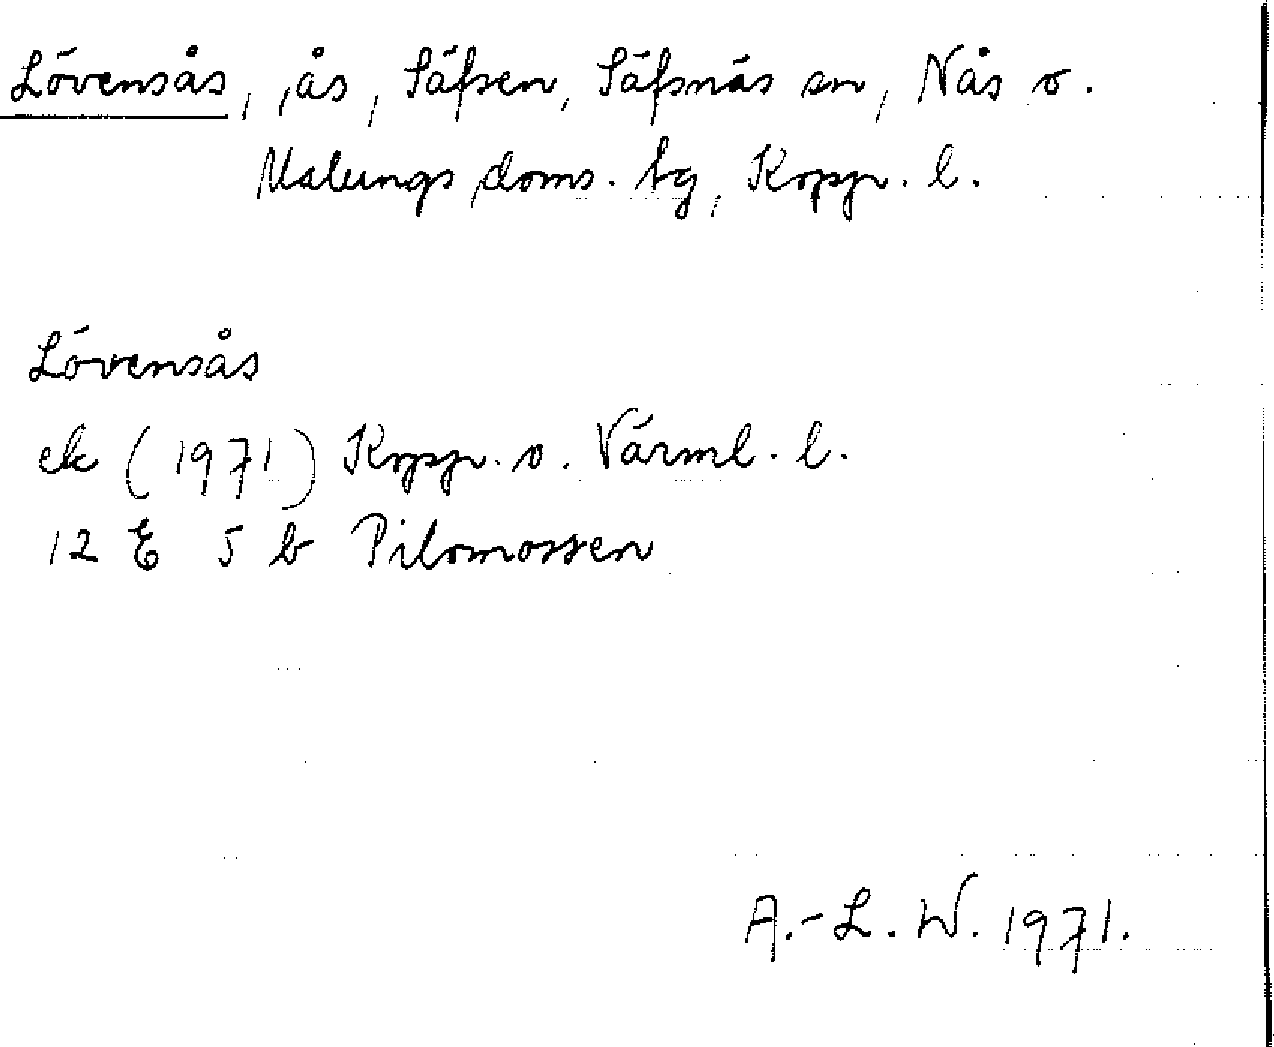 Lövensås, ,ås, Säfsen, Säfsnäs sn, Nås o.
Malungs doms. tg, Kopp. l.
Lövensås
ek (1971) Kopp. o. Värml. l.
12 E 5 b Pilomossen
A.-L. W. 1971.